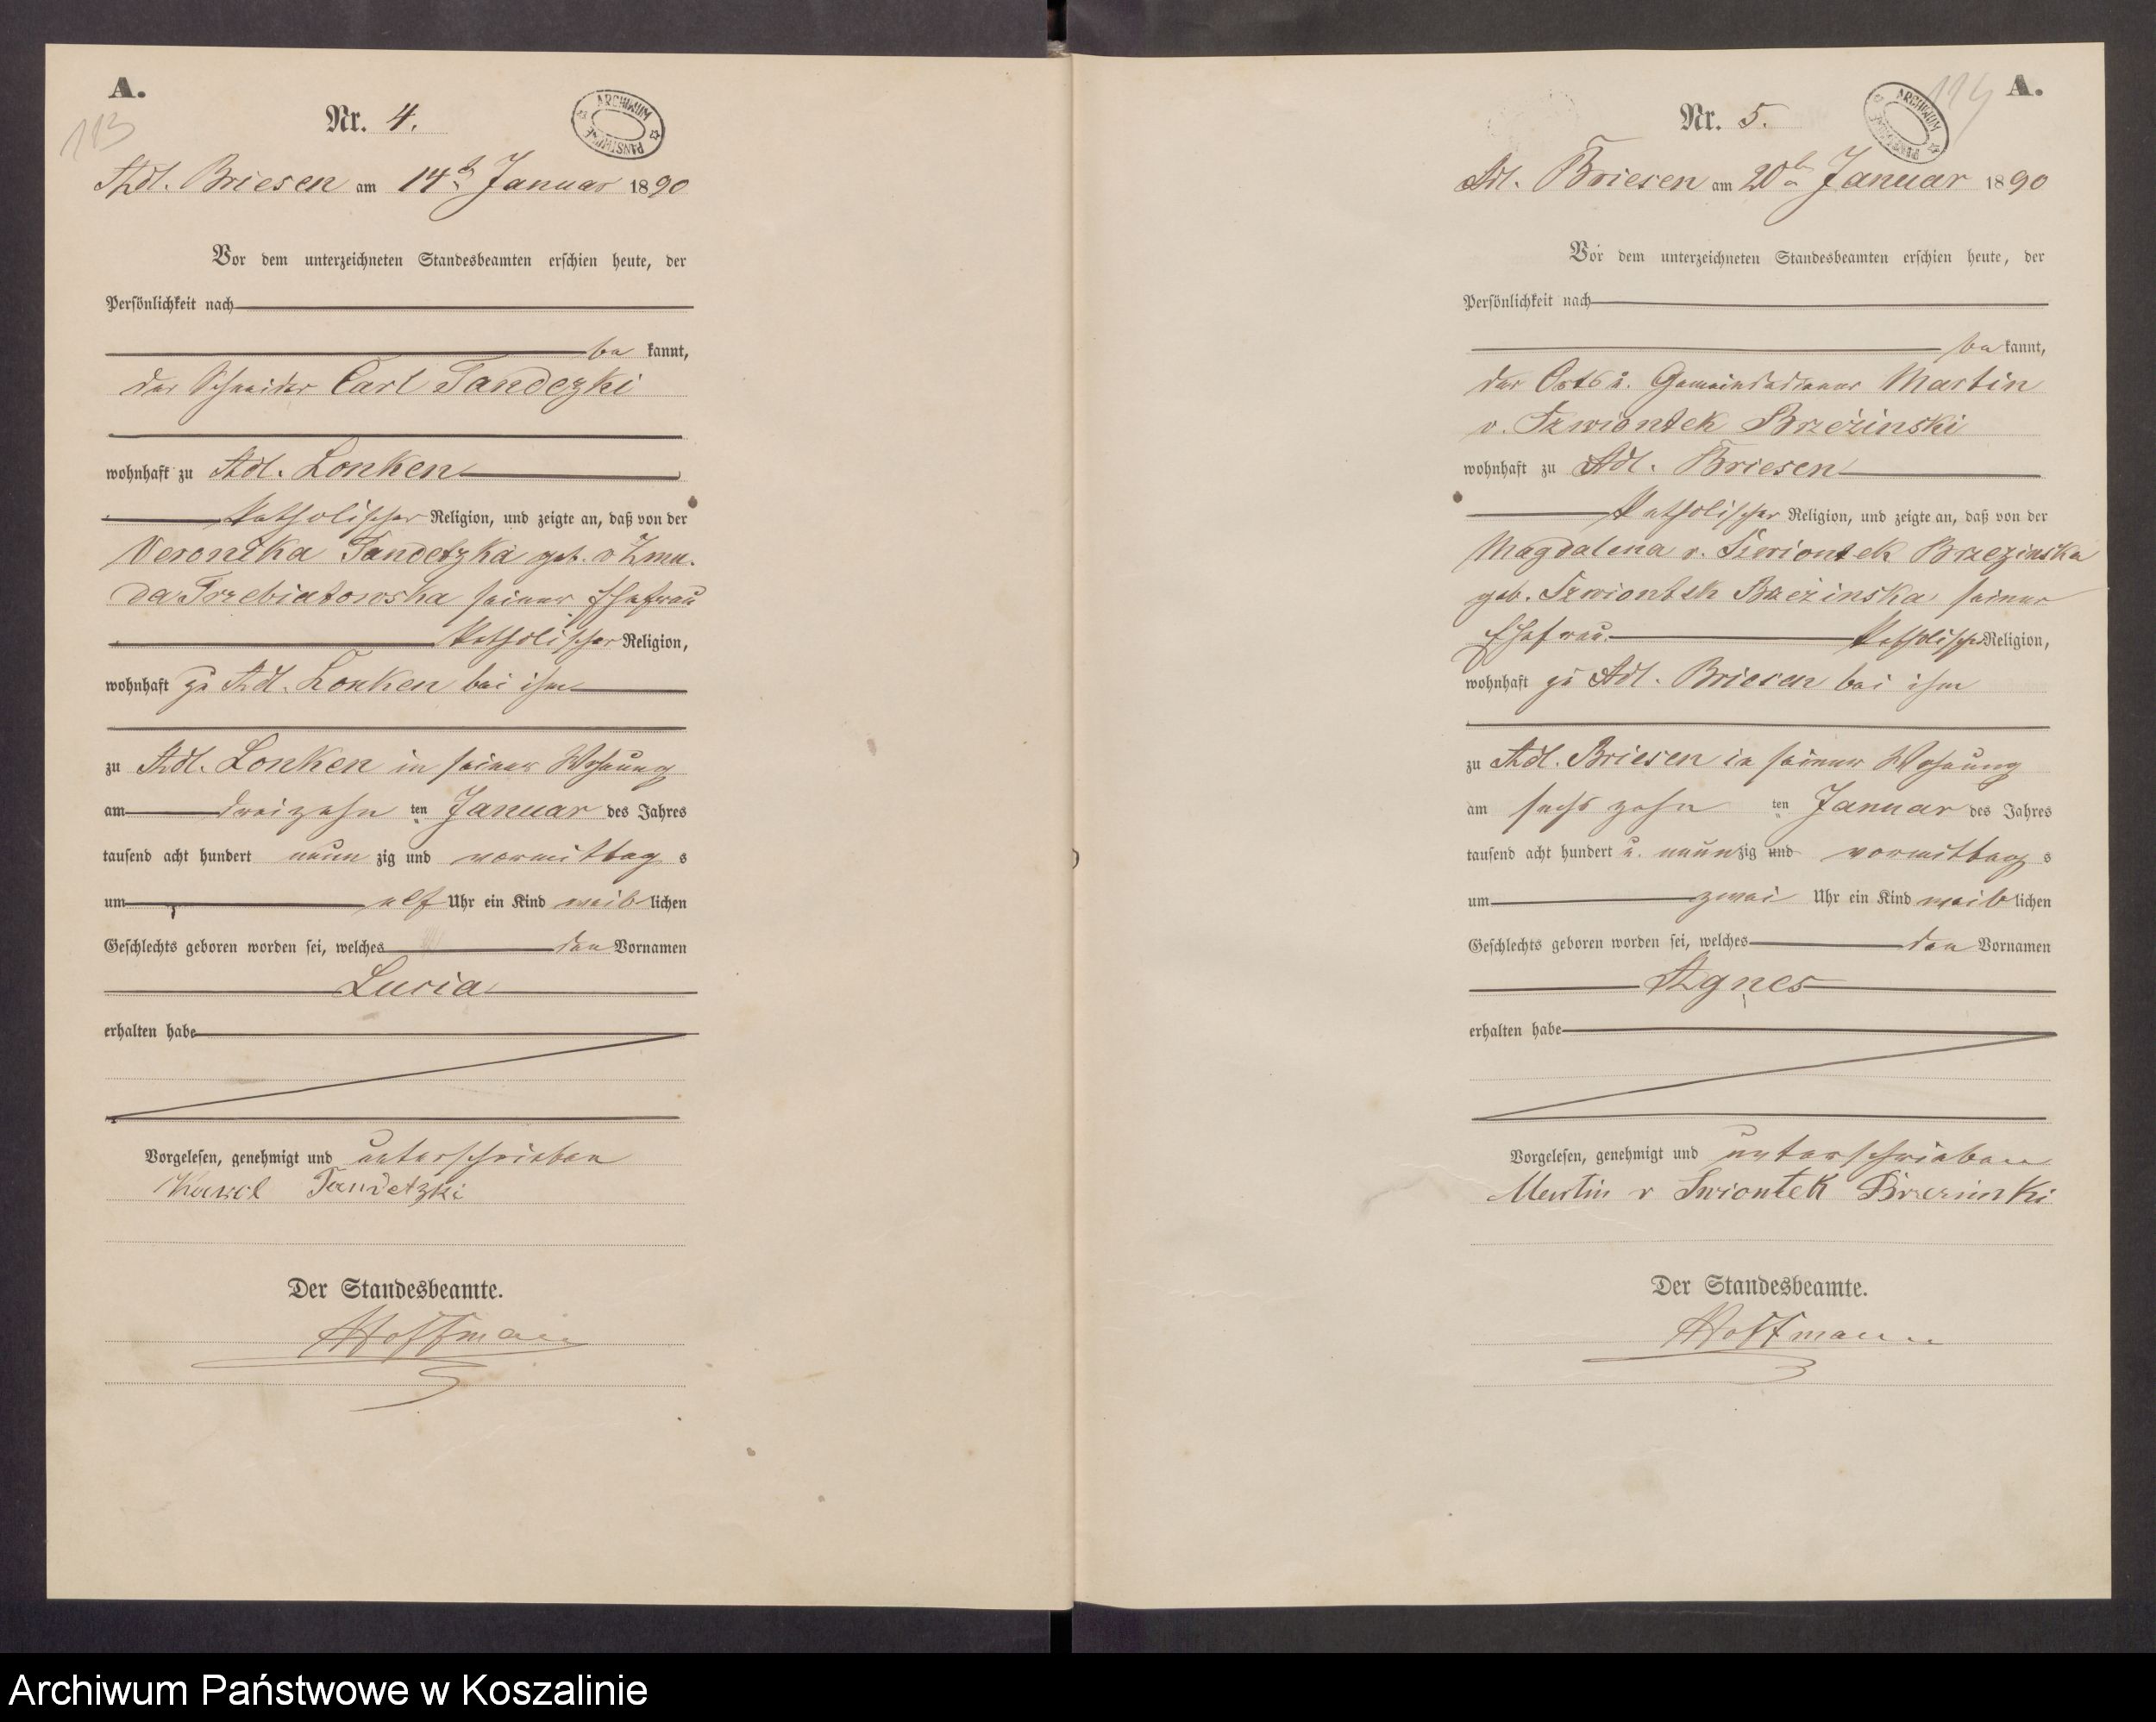 A.
113
Nr. 4.
ARCHIWUM PAŃSTWOWE
Adl. Briesen am 14ten Januar 1890
Vor dem unterzeichneten Standesbeamten erschien heute, der
Persönlichkeit nach
be kannt,
der Schneider Carl Tandezki
wohnhaft zu Adl. Lonken
katholischer Religion, und zeigte an, daß von der
Veronika Tandetzka geb. v Zmu-
da Trzebiatowska seiner Ehefrau
katholischer Religion,
wohnhaft zu Adl. Lonken bei ihm
zu Adl. Lonken in seiner Wohnung
am dreizehn ten Januar des Jahres
tausend acht hundert neun zig und vormittag s
um elf Uhr ein Kind weib lichen
Geschlechts geboren worden sei, welches den Vornamen
Lucia
erhalten habe
Vorgelesen, genehmigt und unterschrieben
Karol Tandetzki
Der Standesbeamte.
Hoffmann
A.
114
Nr. 5.
ARCHIWUM PAŃSTWOWE
Adl. Briesen am 20ten Januar 1890
Vor dem unterzeichneten Standesbeamten erschien heute, der
Persönlichkeit nach
be kannt,
der Orts u. Gemeindediener Martin
v. Szwiontek Brzezinski
wohnhaft zu Adl. Briesen
katholischer Religion, und zeigte an, daß von der
Magdalena v. Szwiontek Brzezinska
geb. Szwiontek Brzezinska seiner
Ehefrau katholischer Religion,
wohnhaft zu Adl. Briesen bei ihm
zu Adl. Briesen in seiner Wohnung
am sechs zehn ten Januar des Jahres
tausend acht hundert u. neunzig und vormittag s
um zwei Uhr ein Kind weib lichen
Geschlechts geboren worden sei, welches den Vornamen
Agnes
erhalten habe
Vorgelesen, genehmigt und unterschrieben
Martin v Swiontek Brzezinski
Der Standesbeamte.
Hoffmann
Archiwum Państwowe w Koszalinie